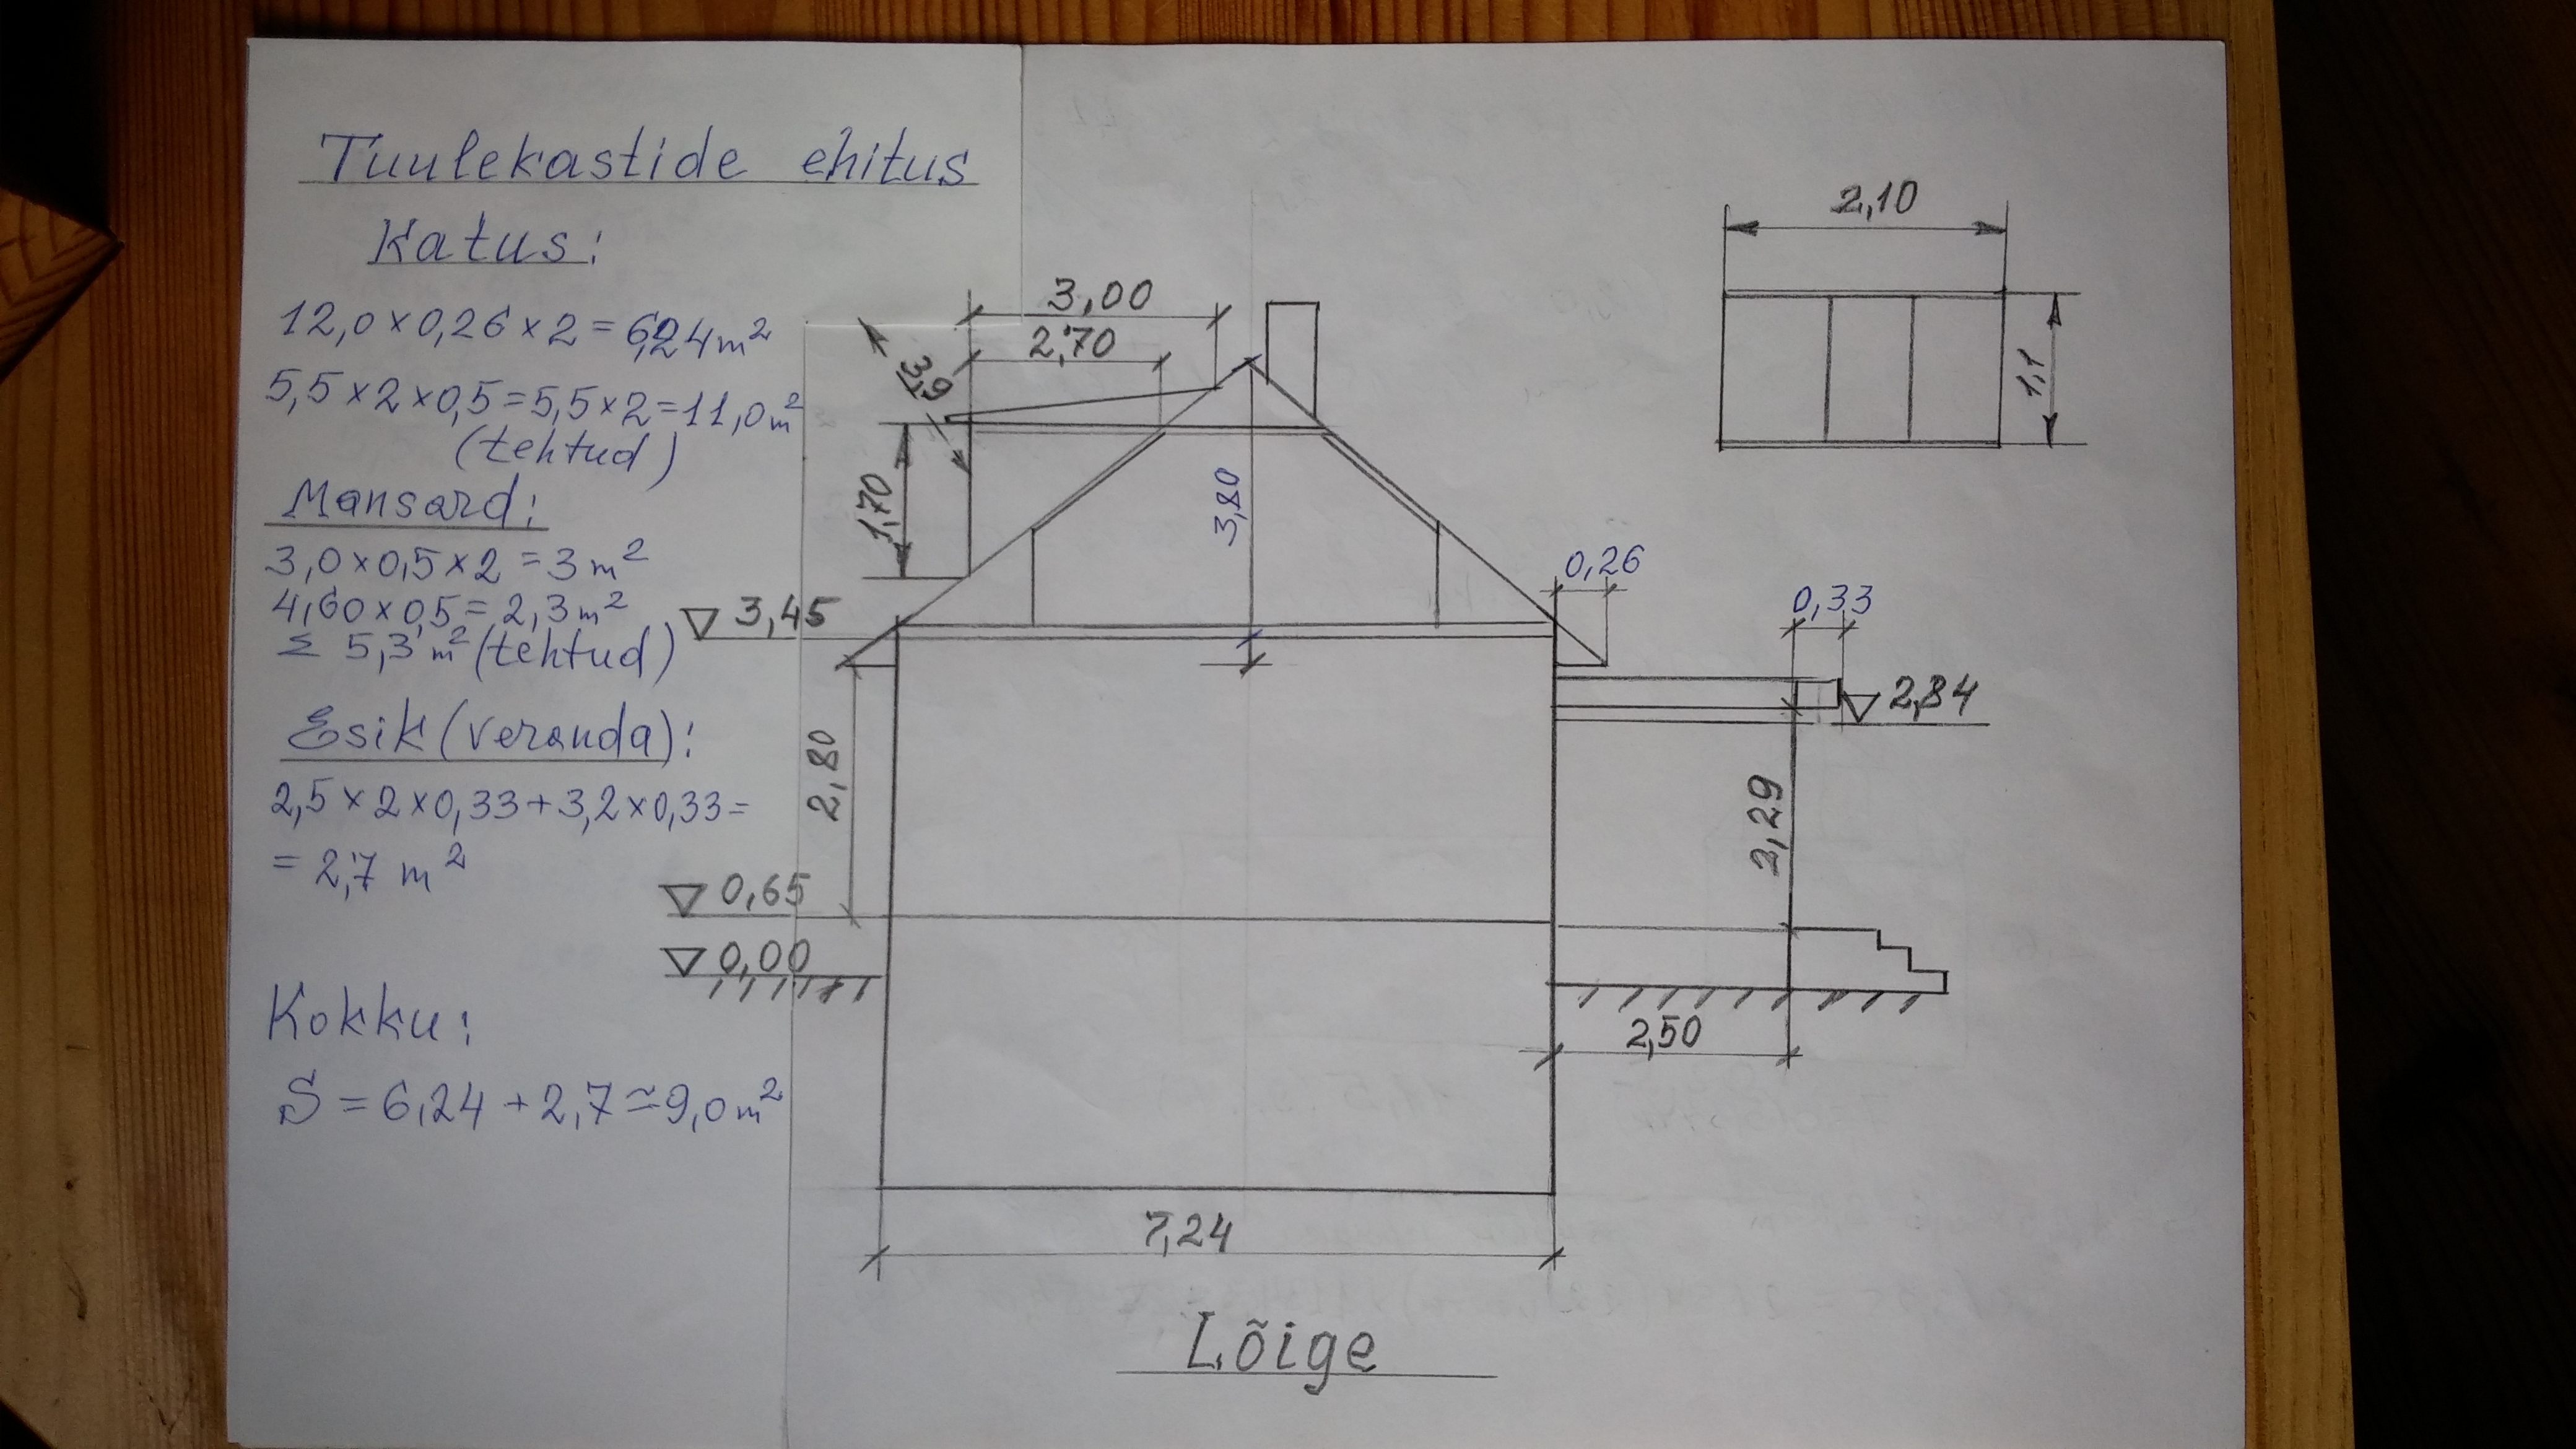 Tuulekastide ehitus
Katus:
12,0 × 0,26 × 2 = 6,24 m²
5,5 × 2 × 0,5 = 5,5 × 2 = 11,0 m²
(tehtud)
Mansard:
3,0 × 0,5 × 2 = 3 m²
4,60 × 0,5 = 2,3 m²
Σ 5,3 m² (tehtud)
Esik (veranda):
2,5 × 2 × 0,33 + 3,2 × 0,33 =
= 2,7 m²
Kokku:
S = 6,24 + 2,7 ≃ 9,0 m²
3,00
2,70
3,9
1,70
3,80
3,45
2,80
0,65
0,00
7,24
0,26
0,33
2,84
2,29
2,50
2,10
1,1
Lõige